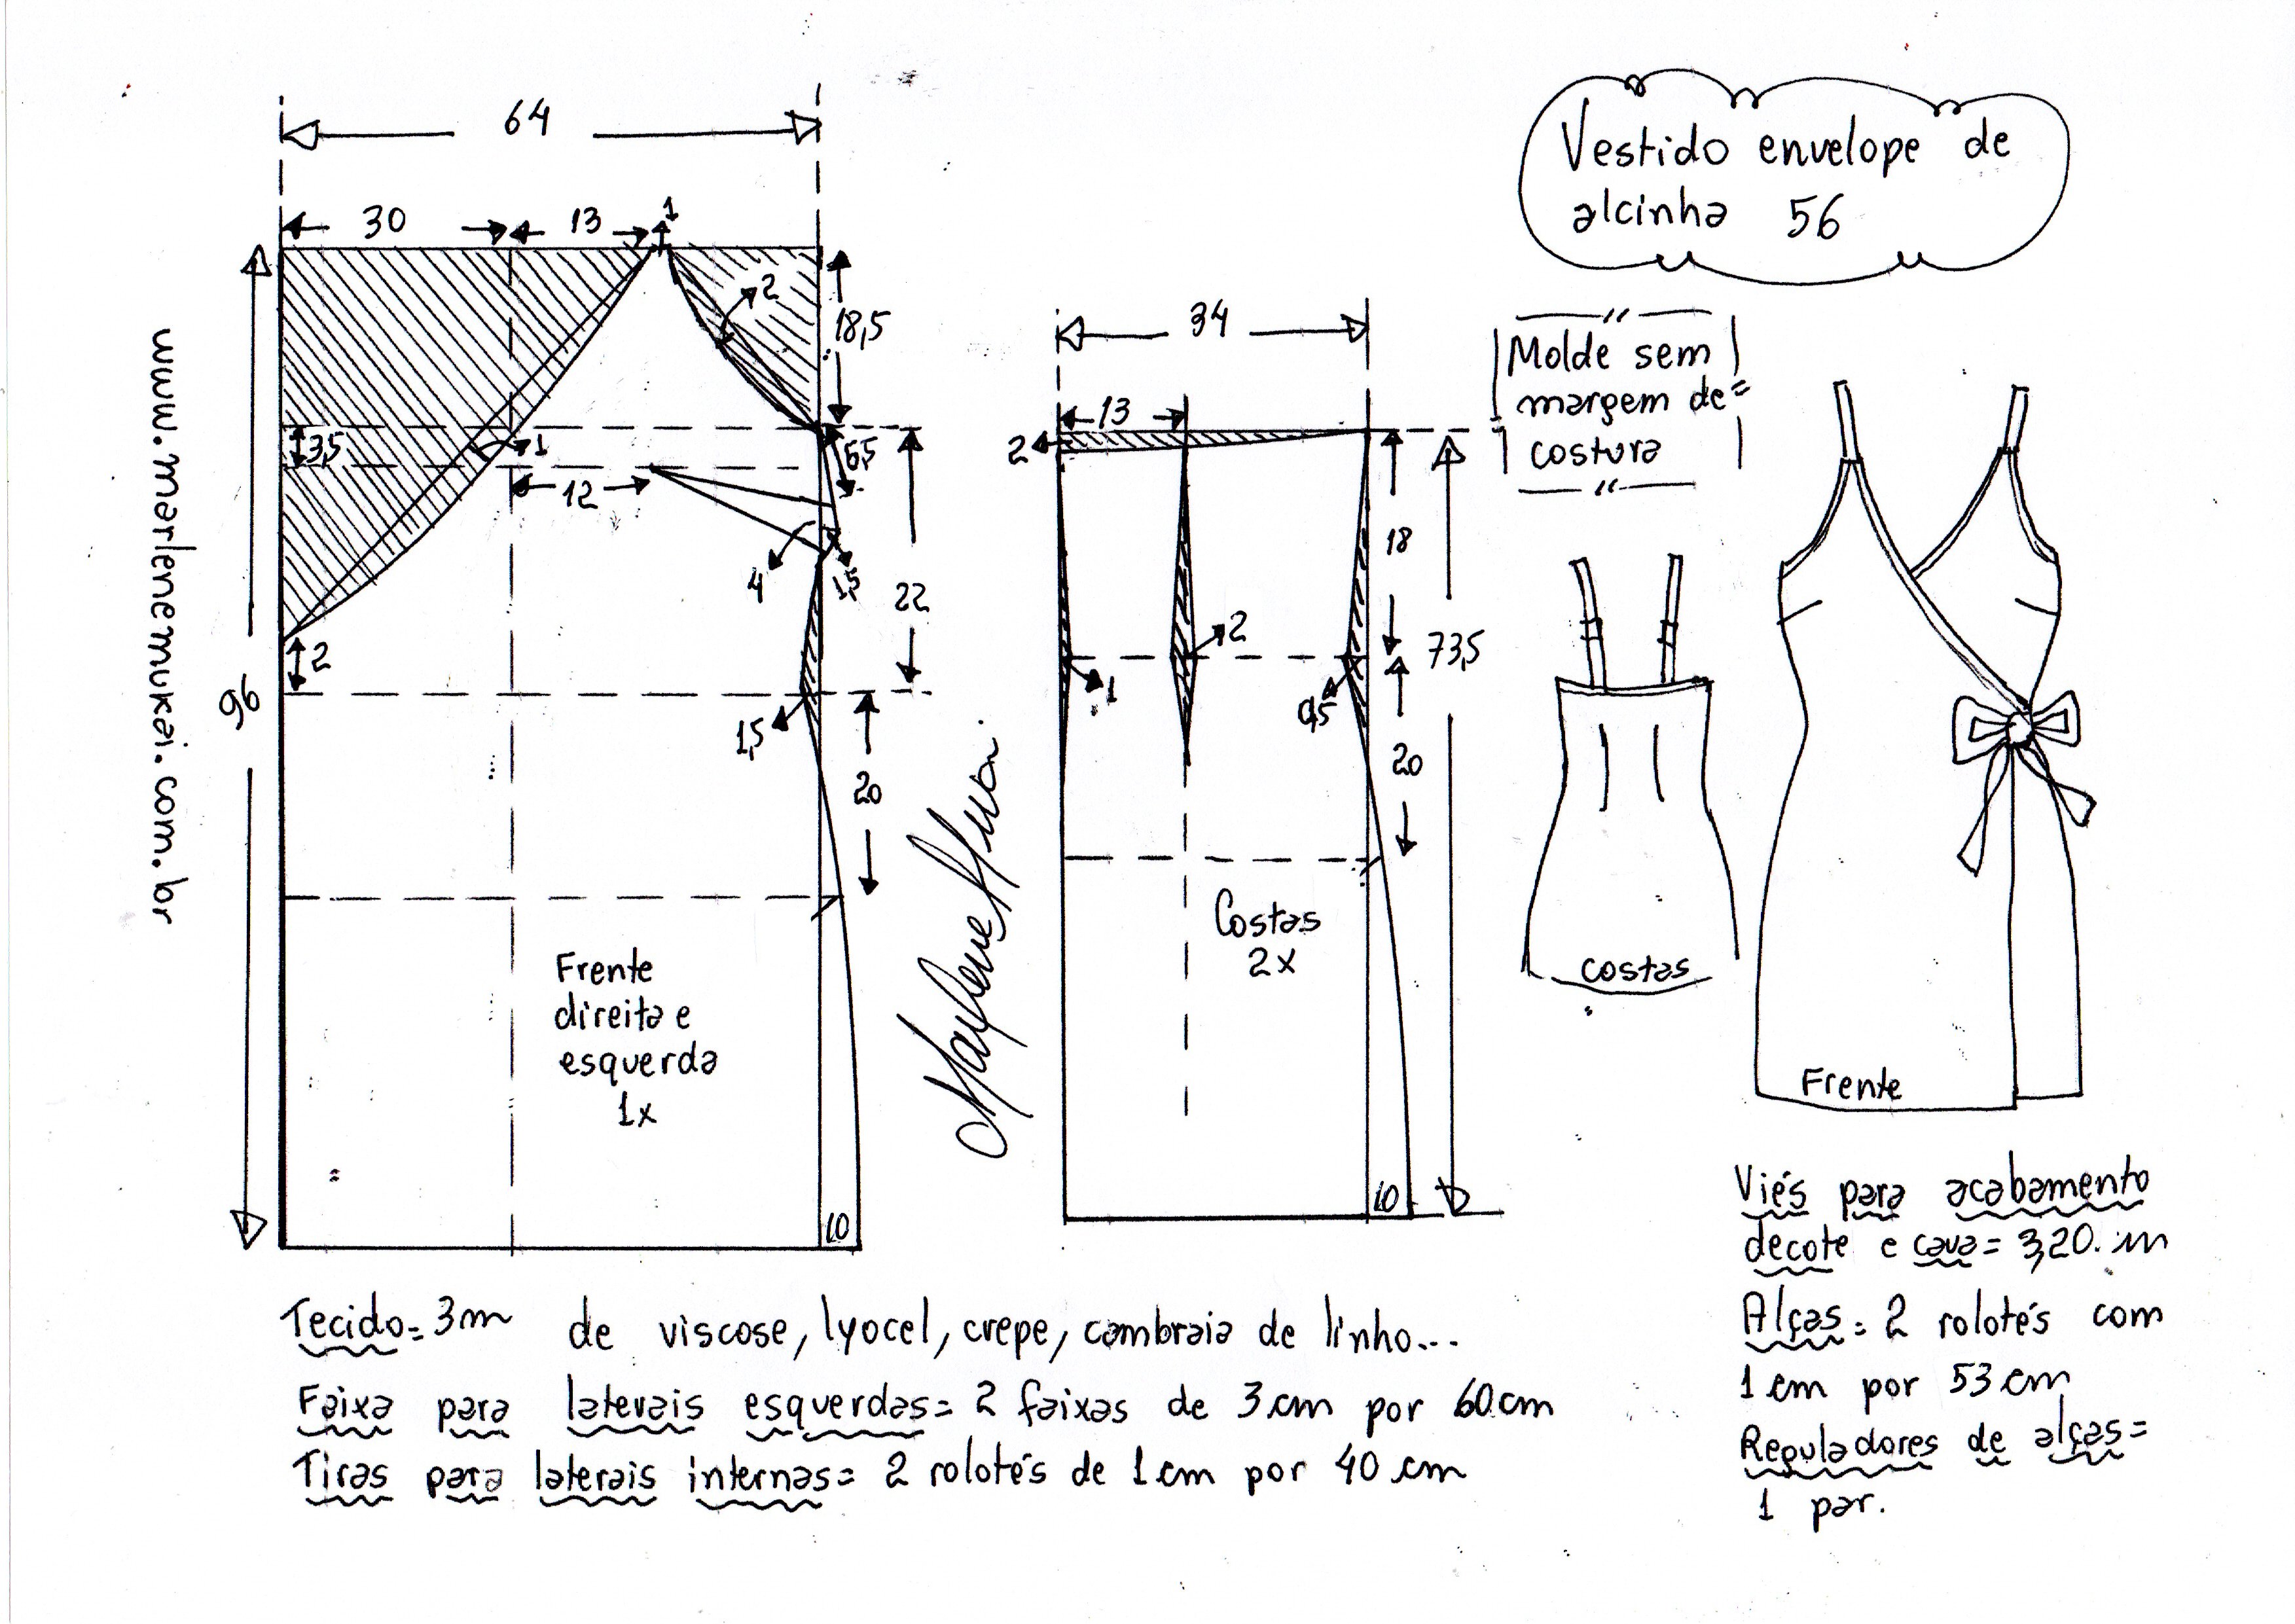 64
30
13
1
2
18,5
3,5
1
6,5
12
4
1,5
22
2
96
1,5
20
Frente
direita e
esquerda
1x
10
www.marlenemukai.com.br
34
13
2
18
2
73,5
1
0,5
20
Costas
2x
10
Vestido envelope de
alcinha 56
Molde sem
margem de
costura
costas
Frente
Tecido = 3m de viscose, lyocel, crepe, cambraia de linho...
Faixa para laterais esquerdas = 2 faixas de 3 cm por 60 cm
Tiras para laterais internas = 2 rolotés de 1 cm por 40 cm
Viés para acabamento
decote e cava = 3,20. m
Alças = 2 rolotés com
1 cm por 53 cm
Reguladores de alças =
1 par.